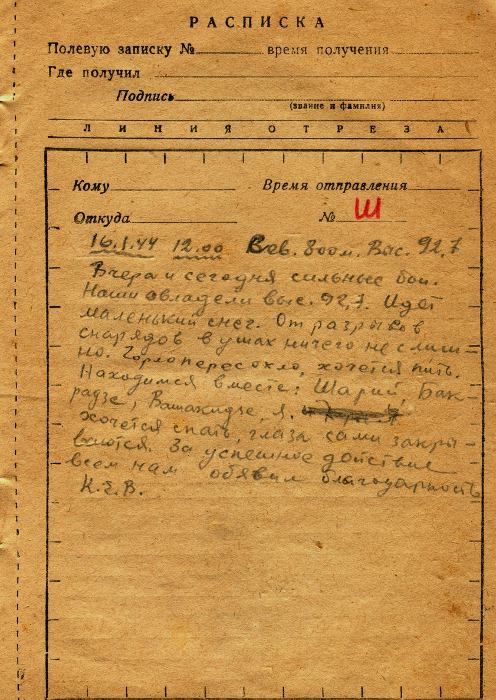 РАСПИСКА
Полевую записку № время получения
Где получил
Подпись
(звание и фамилия)
ЛИНИЯ ОТРЕЗА
Кому Время отправления
Откуда № Ш
16.1.44 12.00 Вев. 800м. Выс. 92,7
Вчера и сегодня сильные бои.
Наши овладели выс. 92,7. Идет
маленький снег. От разрывов
снарядов в ушах ничего не слыш-
но. Горло пересохло, хочется пить.
Находимся вместе: Шарий, Бак-
радзе, Вашакидзе, я.
хочется спать, глаза сами закры-
ваются. За успешное действие
всем нам обявил благодарность
К.Б.В.